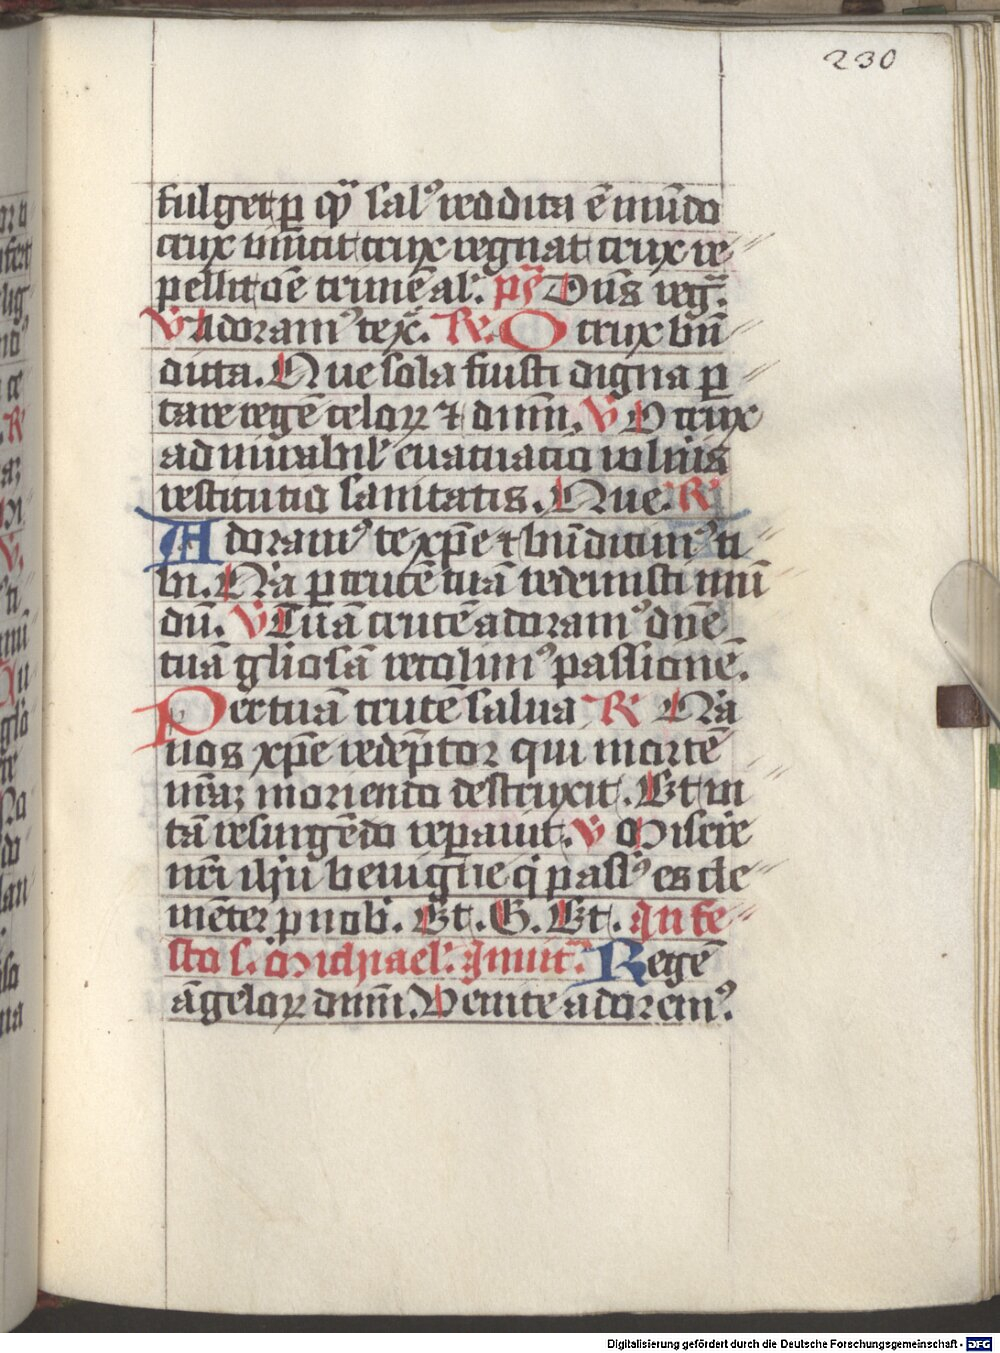 230
fulget p̲ qͫ salꝰ reddita ē mūdo
crux vincit crux regnat crux re
pellit oē crimē al'. ps̄ Dn̄s reg̃.
V Adoramꝰ te xͨ. R. O crux bn̄
dicta. Que sola fuisti digna p̲
tare regē celoꝝ ⁊ dnm̄. V O crux
admirabil' euacuatio vulnīs
restitutio sanitatis. Que. R
Adoramꝰ te xp̄e ⁊ bn̄dicimꝰ ti
bi. Na p̲ crucē tuā redemisti mū
dū. V Tuā crucē adoramꝰ dn̄e
tuā gl̄iosā recolimꝰ passionē.
Per tuā crucē salua R Na
nos xp̄e redēptor qui mortē
nr̄aꝫ moriendo destruxit. Et vi
tā resurgēdo reparauit. V Miserē
nr̄i ih̄u benigne q̇ passꝰ es cle
mēter p̱ nob'. Et. G. Et. In fe
sto s. Michael'. Inuit̄. Regē
āgeloꝝ dnm̄. Venite adoremꝰ.
Digitalisierung gefördert durch die Deutsche Forschungsgemeinschaft - DFG